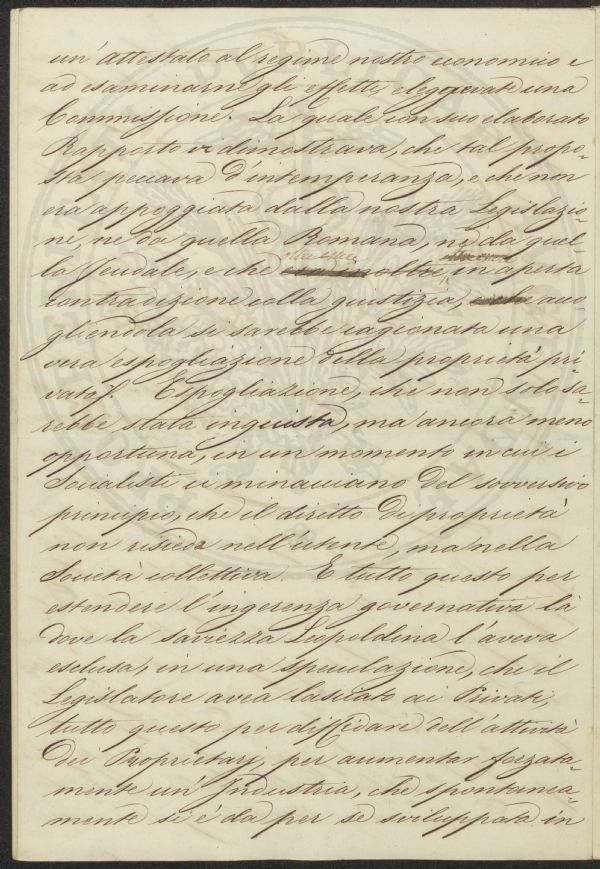 un' attestato al regime nostro economico e
ad esaminarne gli effetti eleggevate una
Commissione. La quale con suo elaborato
Rapporto vi dimostrava, che tal propo=
sta peccava d'intemperanza, e che non
era appoggiata dalla nostra Legislazio=
ne, ne da quella Romana, nè da quel=
la Feudale, e che in aperta
contradizione colla giustizia, acco=
gliendola si sarebbe cagionata una
vera espogliazione della proprietà pri=
vata. Espogliazione, che non solo sa=
rebbe stata ingiusta, ma ancora meno
opportuna, in un momento in cui i
Socialisti ci minacciano del sovversivo
principio, che il diritto di proprietà
non risieda nell'utente, ma nella
Società collettiva. E tutto questo per
estendere l'ingerenza governativa là
dove la saviezza Leopoldina l'aveva
esclusa, in una speculazione, che il
Legislatore avea lasciato ai Privati,
tutto questo per diffidare dell'attività
dei Proprietarj, per aumentar forzata=
mente un' Industria, che spontanea=
mente si è da per se sviluppata in